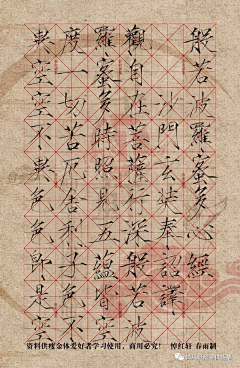 般若波羅蜜多心經
沙門玄奘奉詔譯
觀自在菩薩行深般若波
羅蜜多時照見五蘊皆空
度一切苦厄舍利子色不
異空空不異色色即是空
资料供瘦金体爱好者学习使用，商用必究！ 悼红轩 春雨制